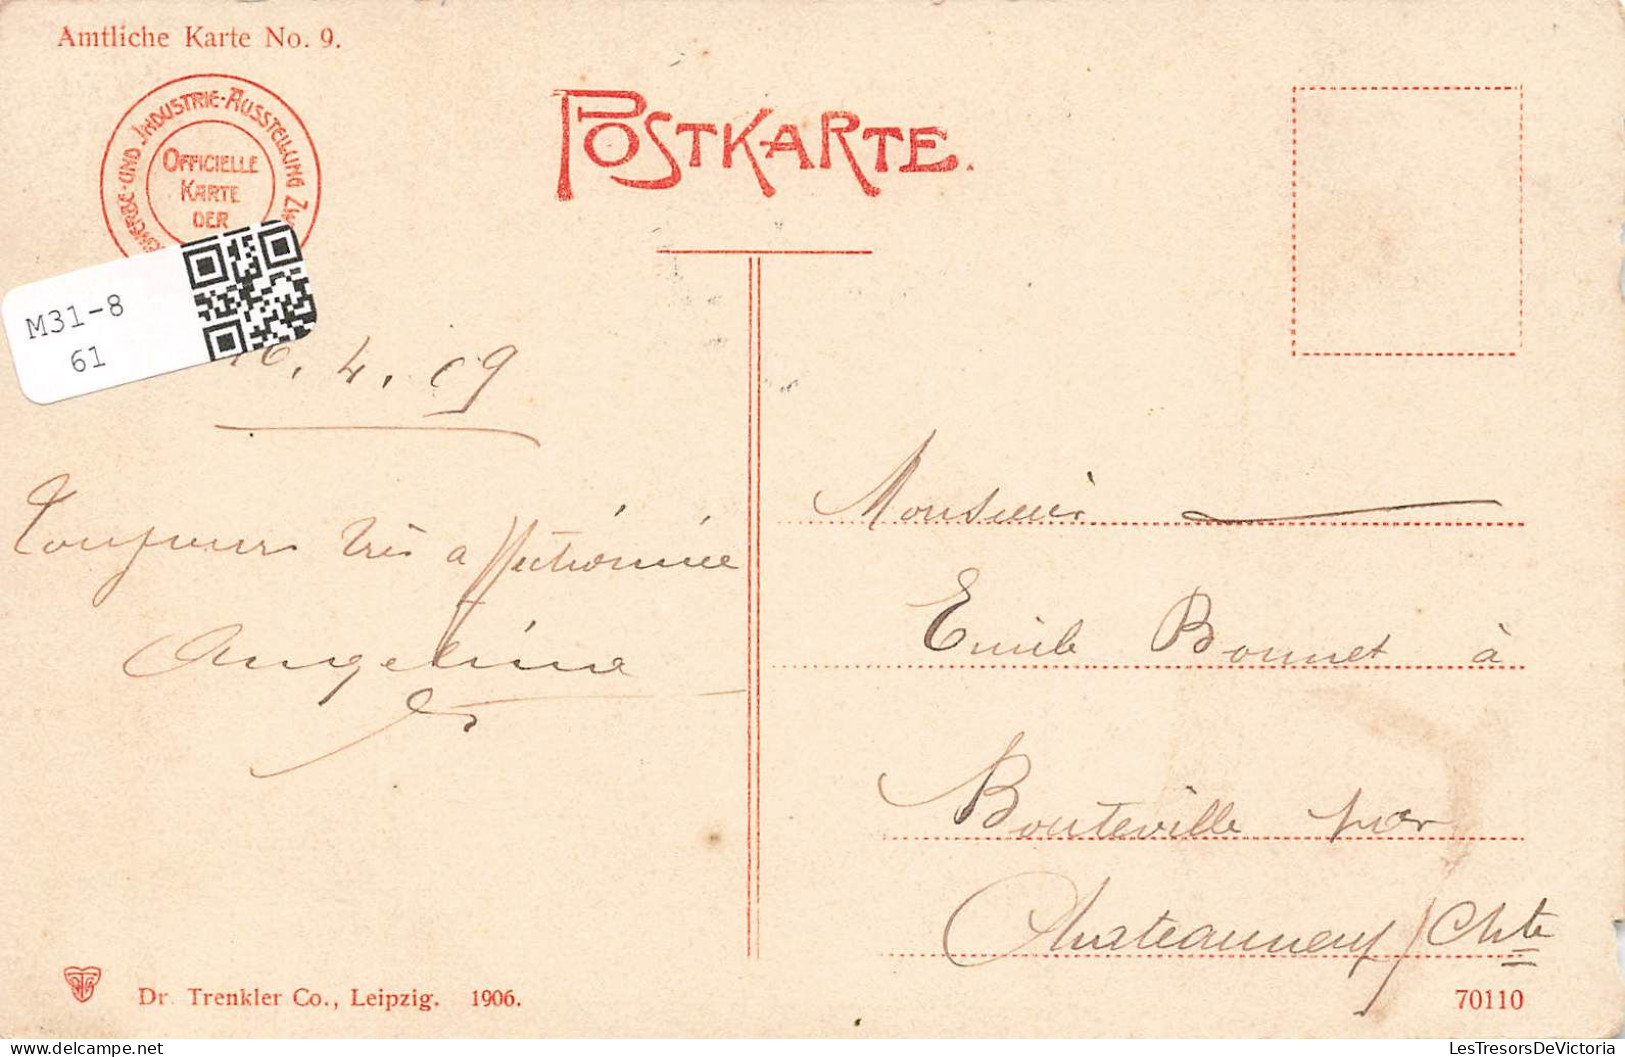 Amtliche Karte No. 9.
POSTKARTE.
UND INDUSTRIE-AUSSTELLUNG
OFFICIELLE
KARTE
DER
M31-8
61
. 4. 09
Toujours très affectionnée
Angelina
Monsieur
Emile Bonnet à
Bouteville par
Chateauneuf / Chte
Dr. Trenkler Co., Leipzig. 1906.
70110
LesTresorsDeVictoria.com